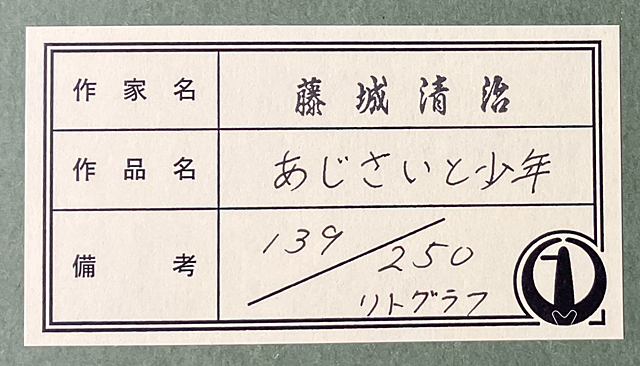 作家名 藤城清治
作品名 あじさいと少年
備考 139/250
リトグラフ